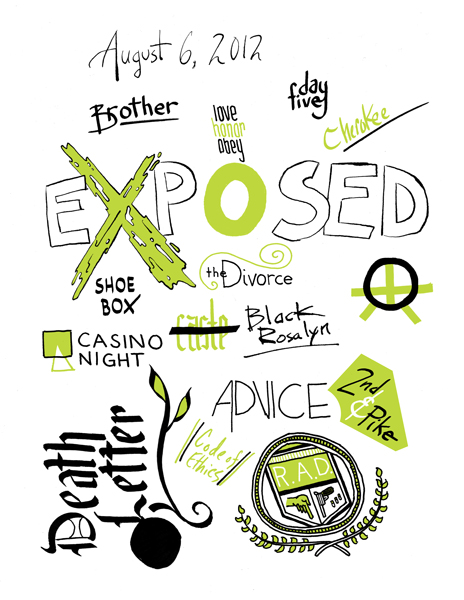 August 6, 2012
Brother
love
honor
obey
day
five
Cherokee
EXPOSED
the Divorce
SHOE
BOX
caste
Black
Rosalyn
CASINO
NIGHT
ADVICE
2nd
&
Pike
Code of
Ethics
Death
Letter
R.A.D.